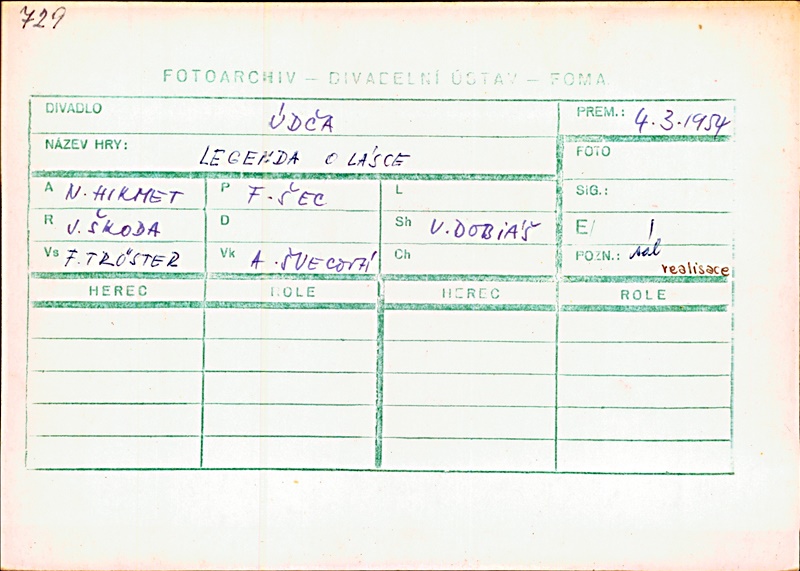 729
FOTOARCHIV – DIVADELNÍ ÚSTAV – FOMA
DIVADLO ÚDČA PREM.: 4.3.1954
NÁZEV HRY: LEGENDA O LÁSCE FOTO
A N. HIKMET P F. ŠEC L SIG.:
R J. ŠKODA D Sh V. DOBIÁŠ E/ 1
Vs F. TRÖSTER Vk A. ŠVECOVÁ Ch POZN.: sál
realisace
HEREC ROLE HEREC ROLE